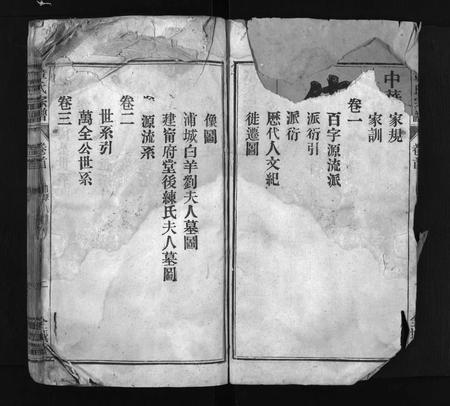 家規
家訓
卷一
百字源流派
派衍引
派衍
歷代人文紀
徙遷圖
像圖
浦城白羊劉夫人墓圖
建甯府堂後練氏夫人墓圖
源流系
卷二
世系引
萬全公世系
卷三
氏宗譜
卷首